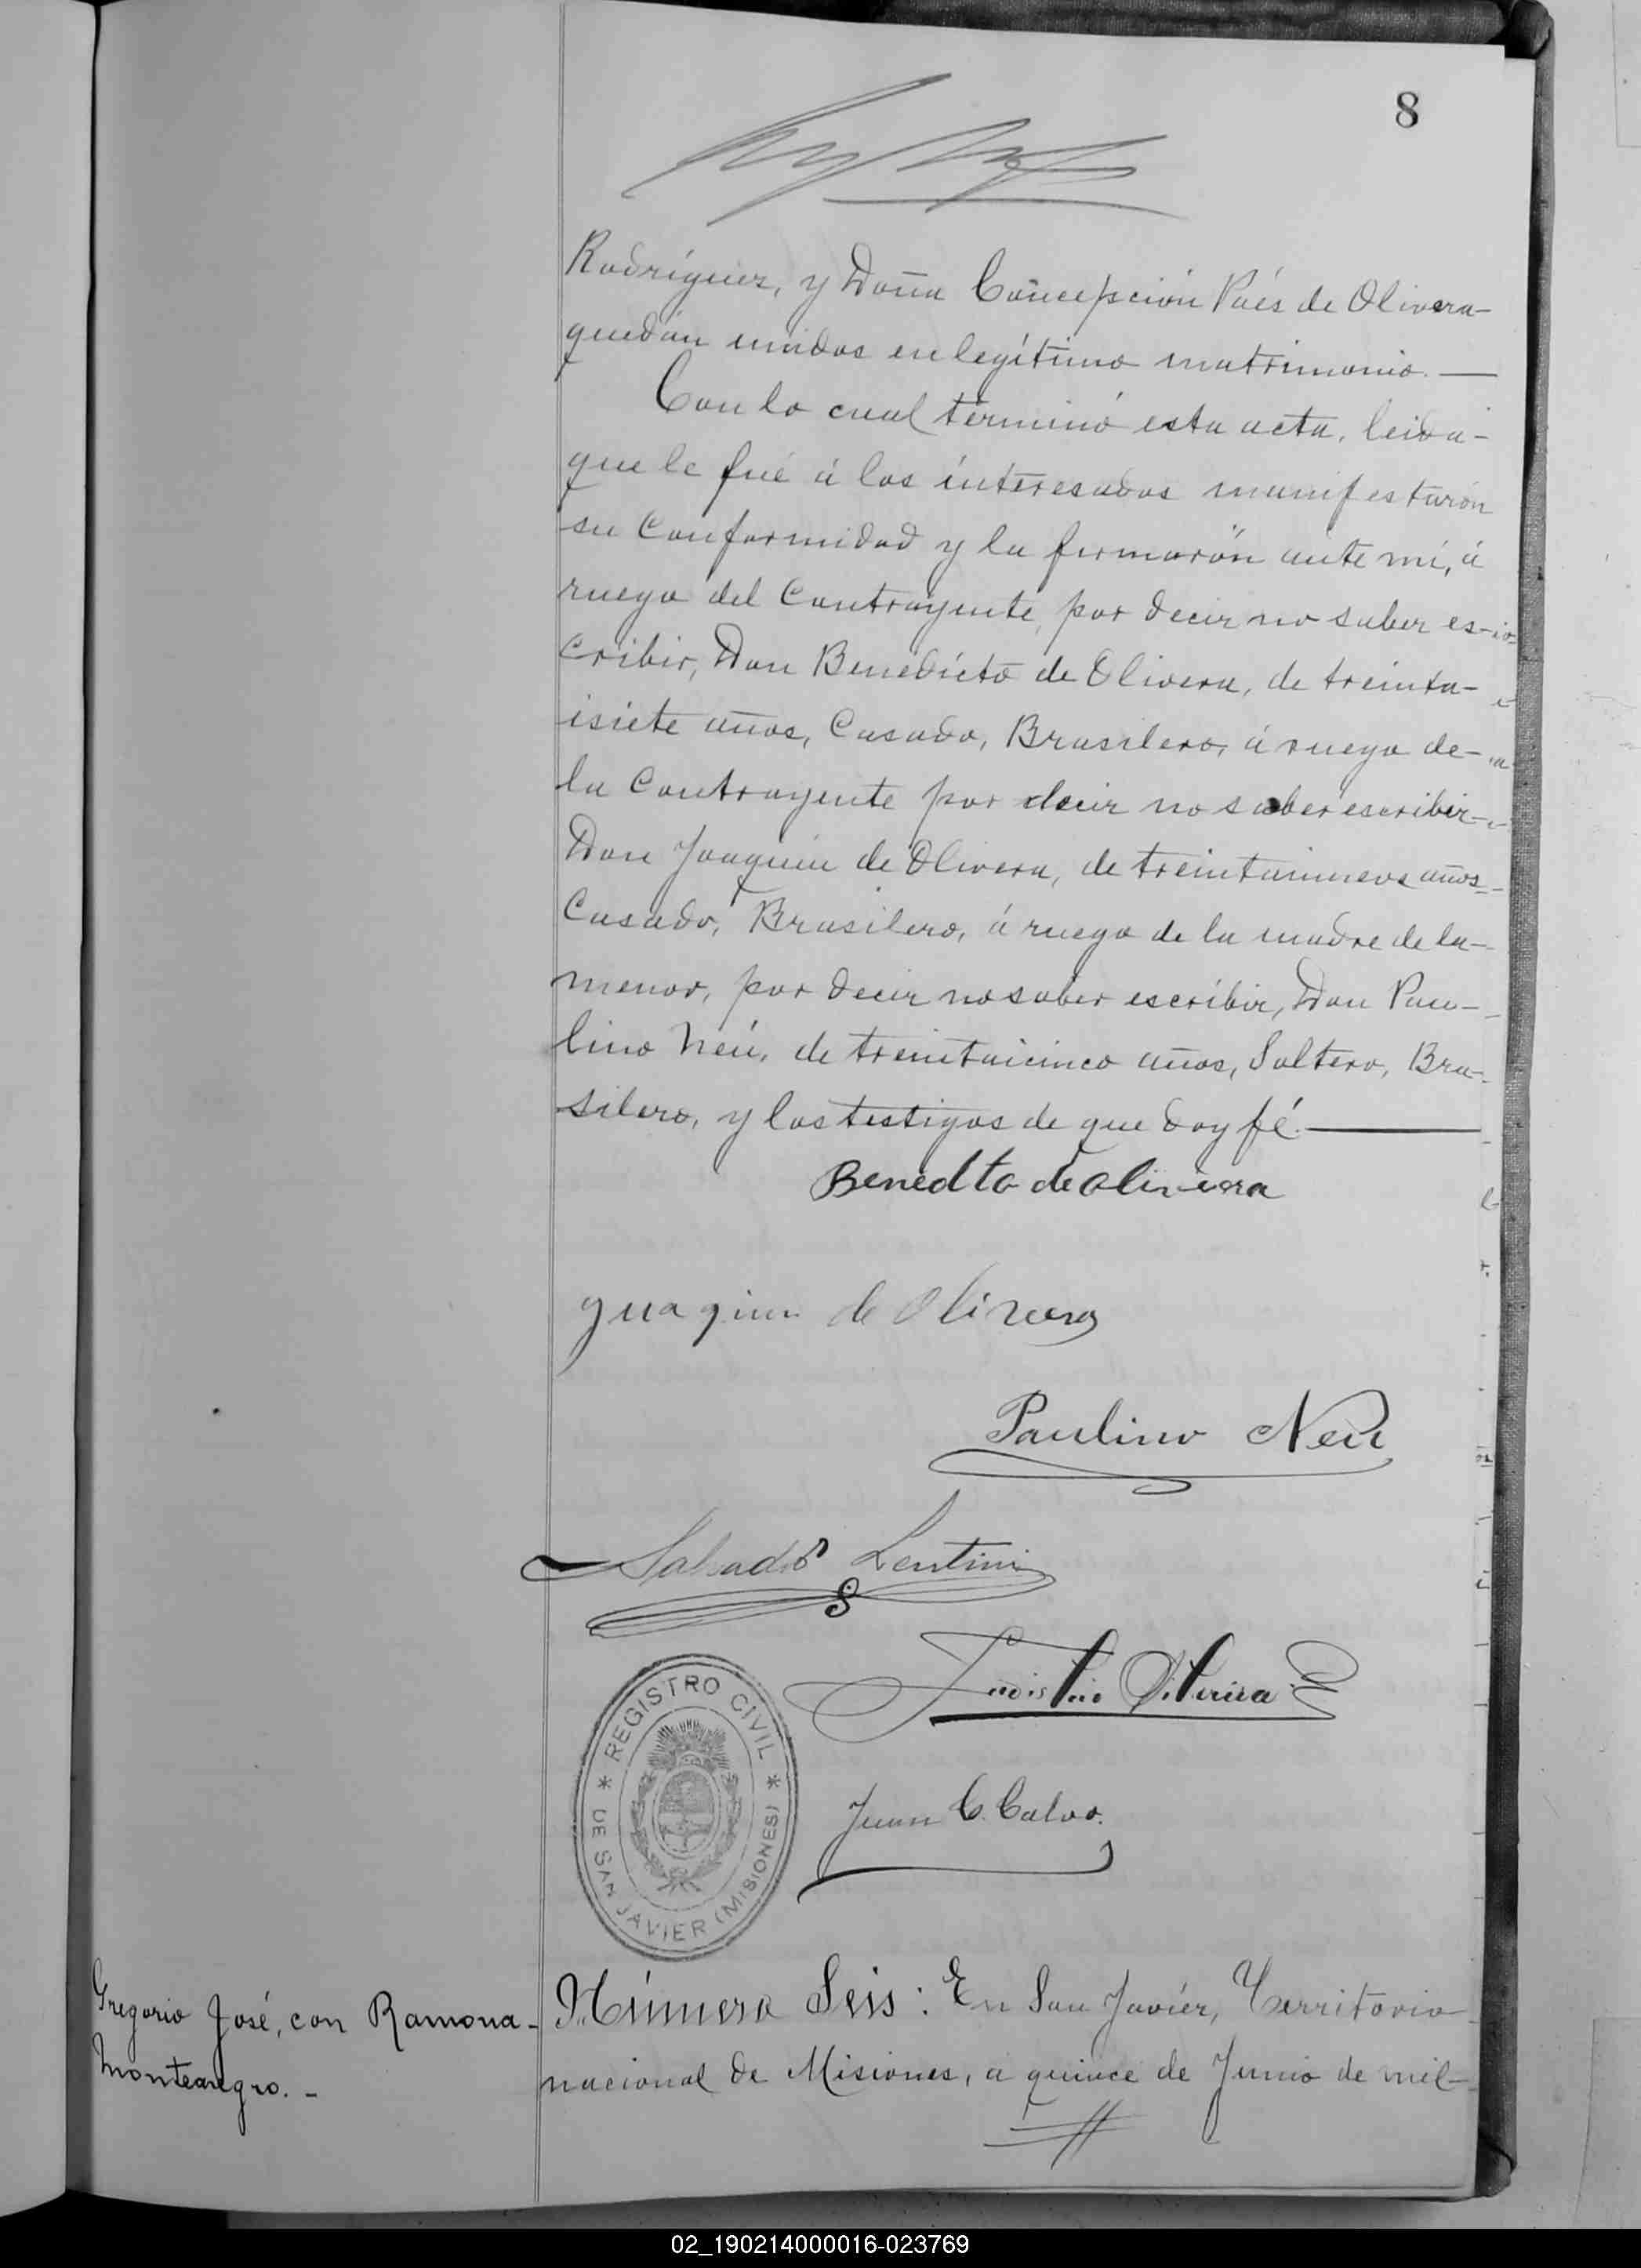 8
Rodríguez, y Doña Concepción Páes de Olivera-
quedán unidos en legítimo matrimonio.—
Con lo cual términó esta acta, leida-
que le fué á los interesados manifestarón
su Conformidad y la firmarón ante mí, á
ruego del Contrayente, por decir no saber es-
cribir, Don Benedícto de Olivera, de treinta-
isiete años, Casado, Brasilero, á ruego de-
la Contrayente por decir no saber escribir-
Don Joaquin de Olivera, de treintainueve años-
Casado, Brasilero, á ruego de la madre de la-
menor, por decir no saber escribir, Don Pau-
lino Neú, de treintaicinco años, Soltero, Bra-
silero, y los testigos de que doy fé.—
Benedto de olivera
guaquin de Olivera
Paulino Neu
Salvador Lentini
Juan C. Calvo.
* REGISTRO CIVIL *
DE SAN JAVIER (MISIONES)
Gregorio José, con Ramona-
Montenegro.-
Número Seis: En San Javiér, Territorio
nacional de Misiones, a quince de Junio de mil-
02_190214000016-023769